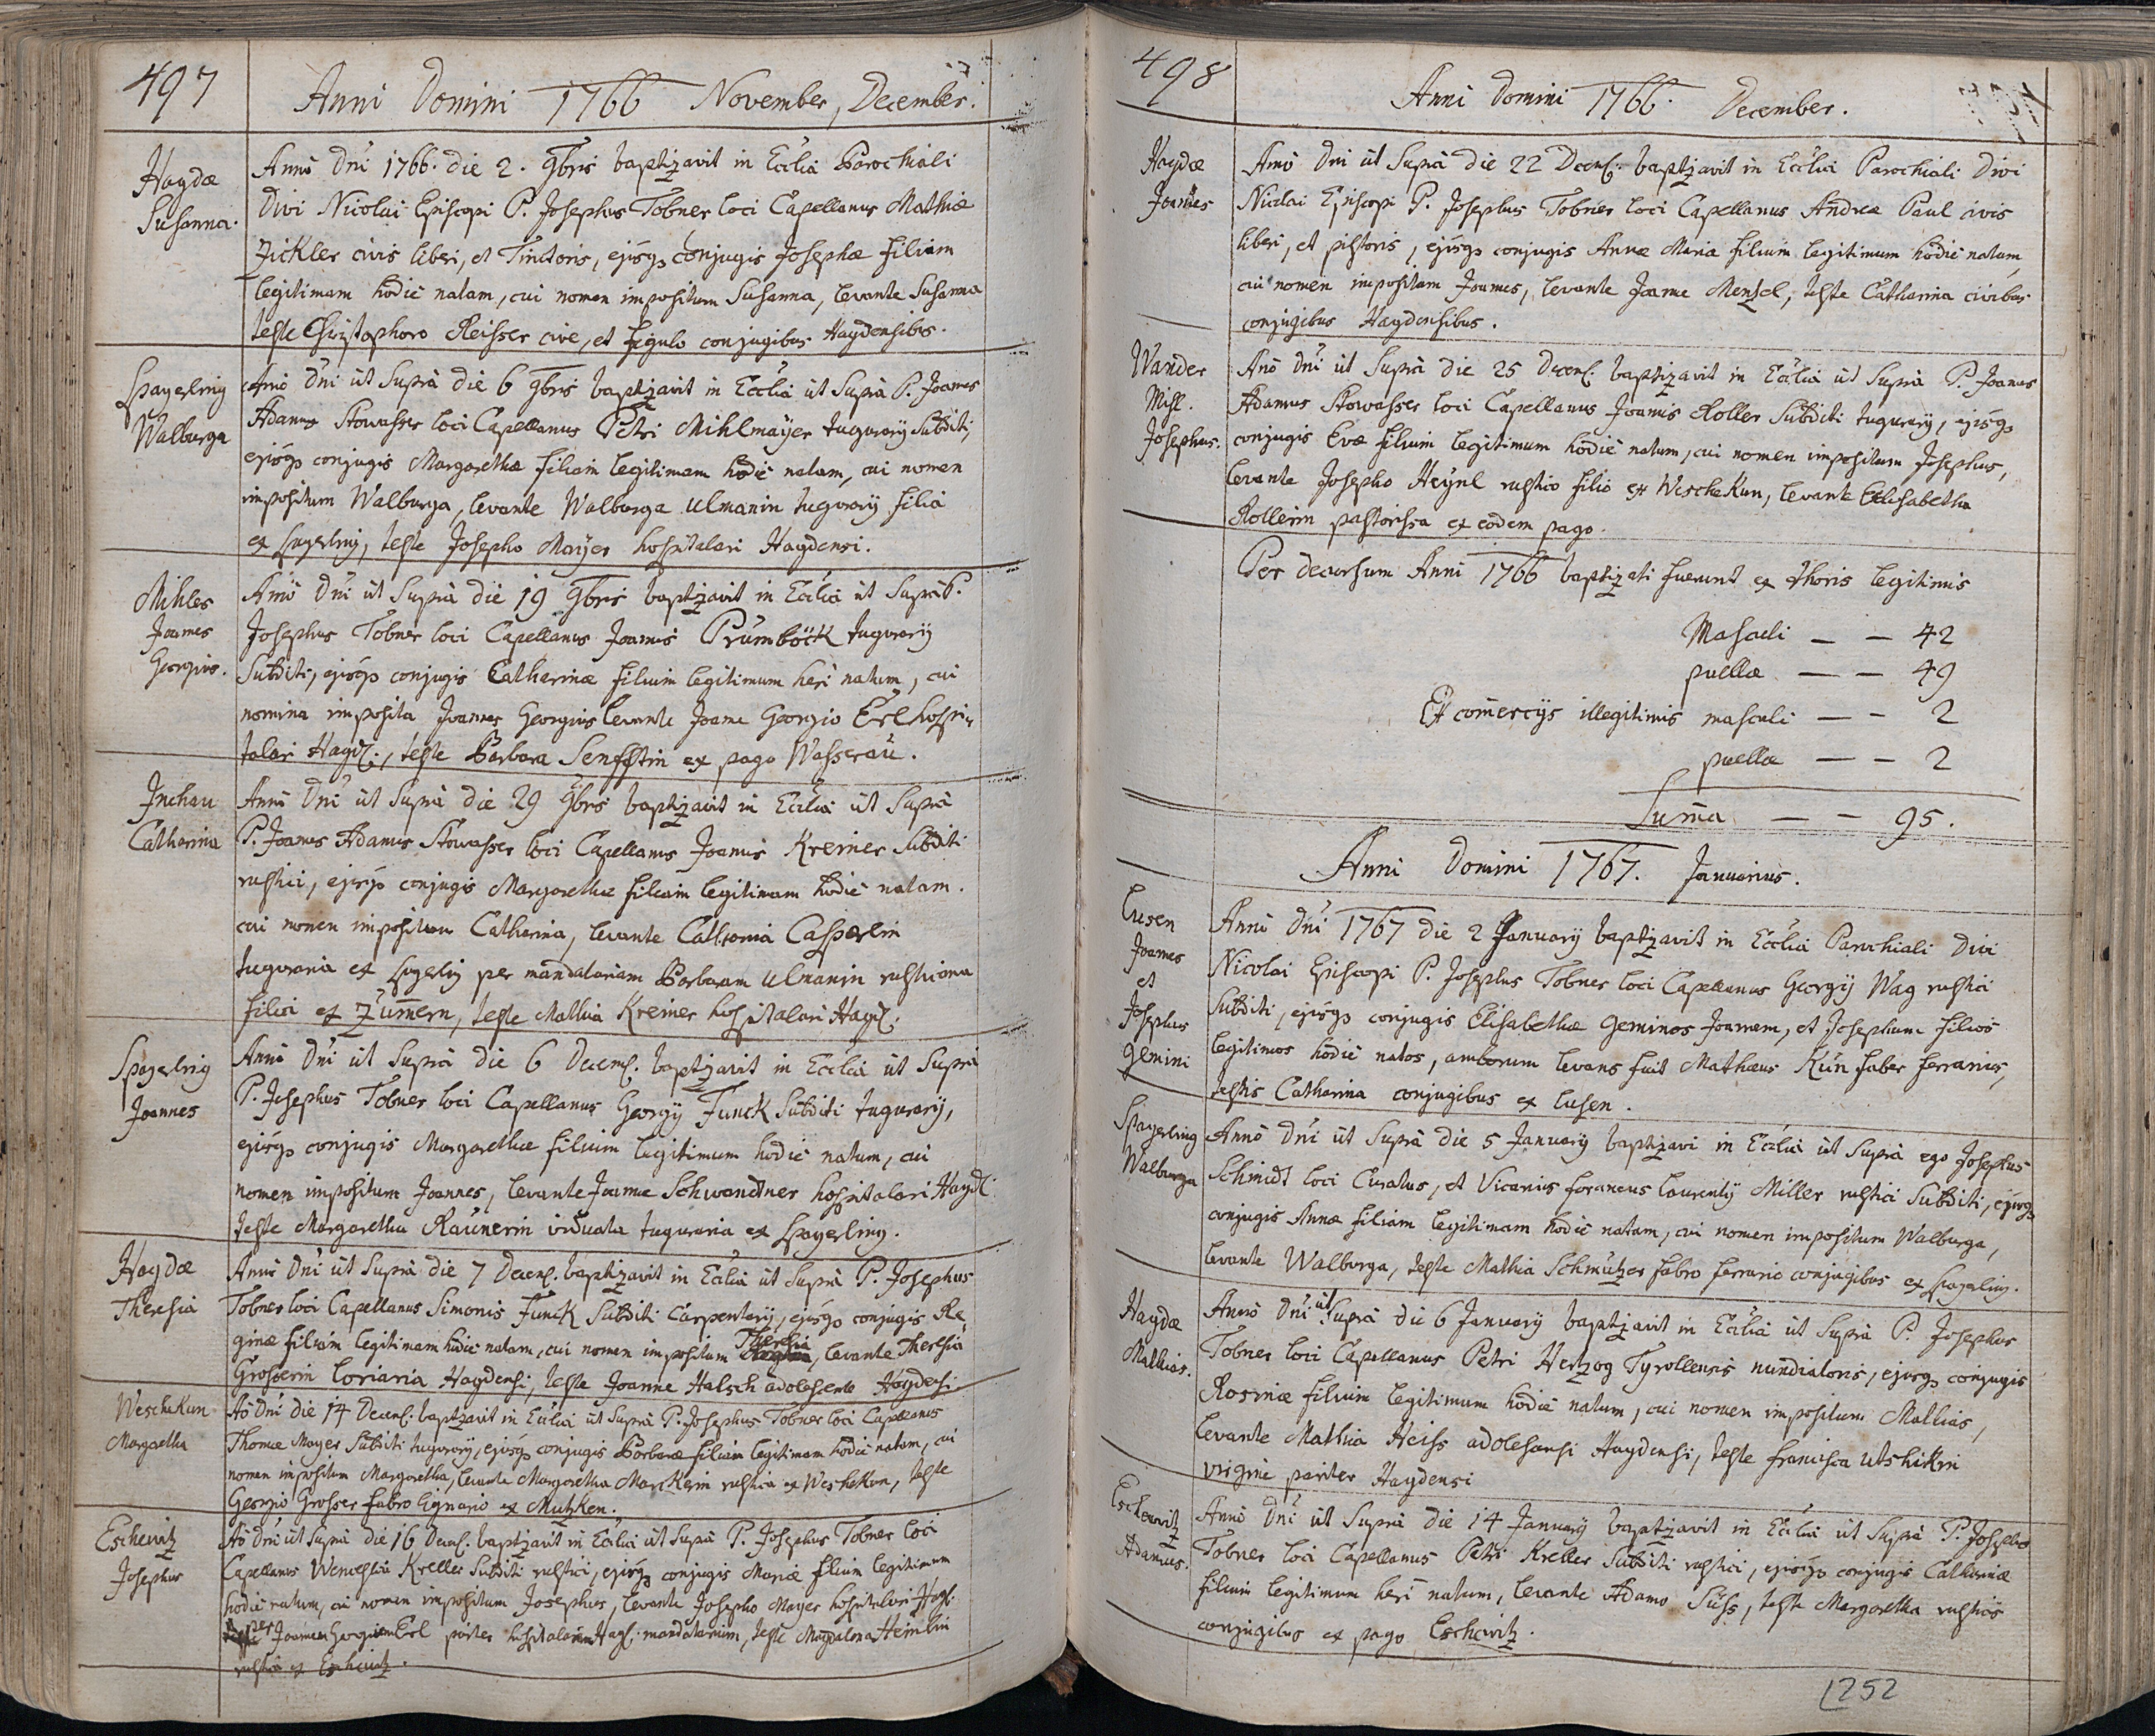 497
Anni Domini 1766 November, December.
Haydæ
Susanna.
Anno Dni 1766. die 2. 9bris baptizavit in Ecclia Parochiali
Divi Nicolai Episcopi P. Josephus Tobner loci Capellanus Mathiæ
Zickler civis liberi, et Tinctoris, ejusq conjugis Josephæ filiam
legitimam hodie natam, cui nomen impositum Susanna, levante Susanna
teste Christophoro Reisser cive, et figulo conjugibus Haydensibus.
Spayerling
Walburga
Anno Dni ut Supra die 6 9bris baptizavit in Ecclia ut Supra P. Joannes
Adamus Stowasser loci Capellanus Petri Mihlmayer tugurarij Subditi,
ejusq conjugis Margarethæ filiam legitimam hodie natam, cui nomen
impositum Walburga, levante Walburga Ulmanin tugurarij filia
ex Spayerling, teste Josepho Mayer hospitalari Haydensi.
Mihles
Joannes
Georgius.
Anno Dni ut Supra die 19 9bris baptizavit in Ecclia ut Supra P.
Josephus Tobner loci Capellanus Joannis Prumböck tugurarij
Subditi, ejusq conjugis Catharinæ filium legitimum heri natum, cui
nomina imposita Joannes Georgius levante Joanne Georgio Erl hospi-
talari Hayd:, teste Barbara Senfftin ex pago Wasserau.
Inchau
Catharina
Anno Dni ut Supra die 29 9bris baptizavit in Ecclia ut Supra
P. Joannes Adamus Stowasser loci Capellanus Joannis Kreiner Subditi
rustici, ejusq conjugis Margarethæ filiam legitimam hodie natam.
cui nomen impositum Catharina, levante Catharina Casparin
tuguraria ex Spayerling per mandatariam Barbaram Ulmanin
filia ex Zummern, teste Mathia Kreiner hospitalari Hayd:
Spayerling
Joannes
Anno Dni ut Supra die 6 Decemb: baptizavit in Ecclia ut Supra
P. Josephus Tobner loci Capellanus Georgij Funck Subditi tugurarij,
ejusq conjugis Margarethæ filium legitimum hodie natum, cui
nomen impositum Joannes, levante Joanne Schwandtner hospitalari Hayd:
teste Margaretha Raunerin viduata tuguraria ex Spayerling.
Haydæ
Theresia
Anno Dni ut Supra die 7 Decemb: baptizavit in Ecclia ut Supra P. Josephus
Tobner loci Capellanus Simonis Funck Subditi Carpentarij, ejusq conjugis Re-
ginæ filiam legitimam hodie natam, cui nomen impositum Theresia, levante Theresia
Grosserin Coriaria Haydensi, teste Joanne Halsch adolescente Haydensi
Weschekun
Margaretha
Ao Dni die 14 Decemb: baptizavit in Ecclia ut Supra P. Josephus Tobner loci Capellanus
Thomæ Mayer Subditi tugurarij, ejusq conjugis Barbaræ filiam legitimam hodie natam, cui
nomen impositum Margaretha, levante Margaretha rustica ex Weschekun, teste
Georgio Grosser fabro lignario ex Mutzken.
Eschewitz
Josephus
Ao Dni ut Supra die 16 Decemb: baptizavit in Ecclia ut Supra P. Josephus Tobner loci
Capellanus Wenceslai Kreller Subditi rustici, ejusq conjugis Mariæ filium legitimum
hodie natum, cui nomen impositum Josephus, levante Josepho Mayer hospitalari Hayd:
per Joannem Georgium Erl pariter hospitalarium Hayd: mandatarium, teste Magdalena Heinlin
rustica ex Eschewitz.
498
Anni Domini 1766. December.
Haydæ
Joannes
Anno Dni ut Supra die 22 Decemb: baptizavit in Ecclia Parochiali Divi
Nicolai Episcopi P. Josephus Tobner loci Capellanus Andreæ Paul civis
liberi, et pistoris, ejusq conjugis Annæ Mariæ filium legitimum hodie natum
cui nomen impositum Joannes, levante Joanne Mentzel, teste Catharina civibus
conjugibus Haydensibus.
Wander
Mihl.
Josephus.
Ano Dni ut Supra die 25 Decemb: baptizavit in Ecclia ut Supra P. Joannes
Adamus Stowasser loci Capellanus Joannis Roller Subditi tugurarij, ejusq
conjugis Evæ filium legitimum hodie natum, cui nomen impositum Josephus,
levante Josepho Heynl rustico filio ex Weschekun, levante Elisabetha
Rollerin pastorissa ex eodem pago.
Per decursum Anni 1766 baptizati fuerunt ex thoris legitimis
Masculi — — 42
puellæ — — 49
Ex comercijs illegitimis masculi — — 2
puellæ — — 2
Suma — — 95.
Anni Domini 1767. Januarius.
Lusen
Joannes
et
Josephus
gemini
Anno Dni 1767 die 2 January baptizavit in Ecclia Parochiali Divi
Nicolai Episcopi P. Josephus Tobner loci Capellanus Georgij Wag rustici
Subditi, ejusq conjugis Elisabethæ geminos Joannem, et Josephum filios
legitimos hodie natos, amborum levans fuit Mathæus Kün faber ferrarius,
testis Catharina conjugibus ex Lusen.
Spayerling
Walburga
Anno Dni ut Supra die 5 January baptizavi in Ecclia ut Supra ego Josephus
Schmidt loci Curatus, et Vicarius foraneus Laurentij Miller rustici Subditi, ejusq
conjugis Annæ filiam legitimam hodie natam, cui nomen impositum Walburga,
levante Walburga, teste Mathia Schmützer fabro ferrario conjugibus ex Spayerling.
Haydæ
Mathias.
Anno Dni ut Supra die 6 January baptizavit in Ecclia ut Supra P. Josephus
Tobner loci Capellanus Petri Hertzog Tyrollensis nundiatoris, ejusq conjugis
Rosinæ filium legitimum hodie natum, cui nomen impositum Mathias,
levante Mathia Heiss adolescensi Haydensi, teste francisca Utshikin
virgine pariter Haydensi
Eschewitz
Adamus.
Anno Dni ut Supra die 14 January baptizavit in Ecclia ut Supra P. Josephus
Tobner loci Capellanus Petri Kreller Subditi rustici, ejusq conjugis Catharinæ
filium legitimum heri natum, levante Adamo Süss, teste Margaretha rusticis
conjugibus ex pago Eschewitz.
1252